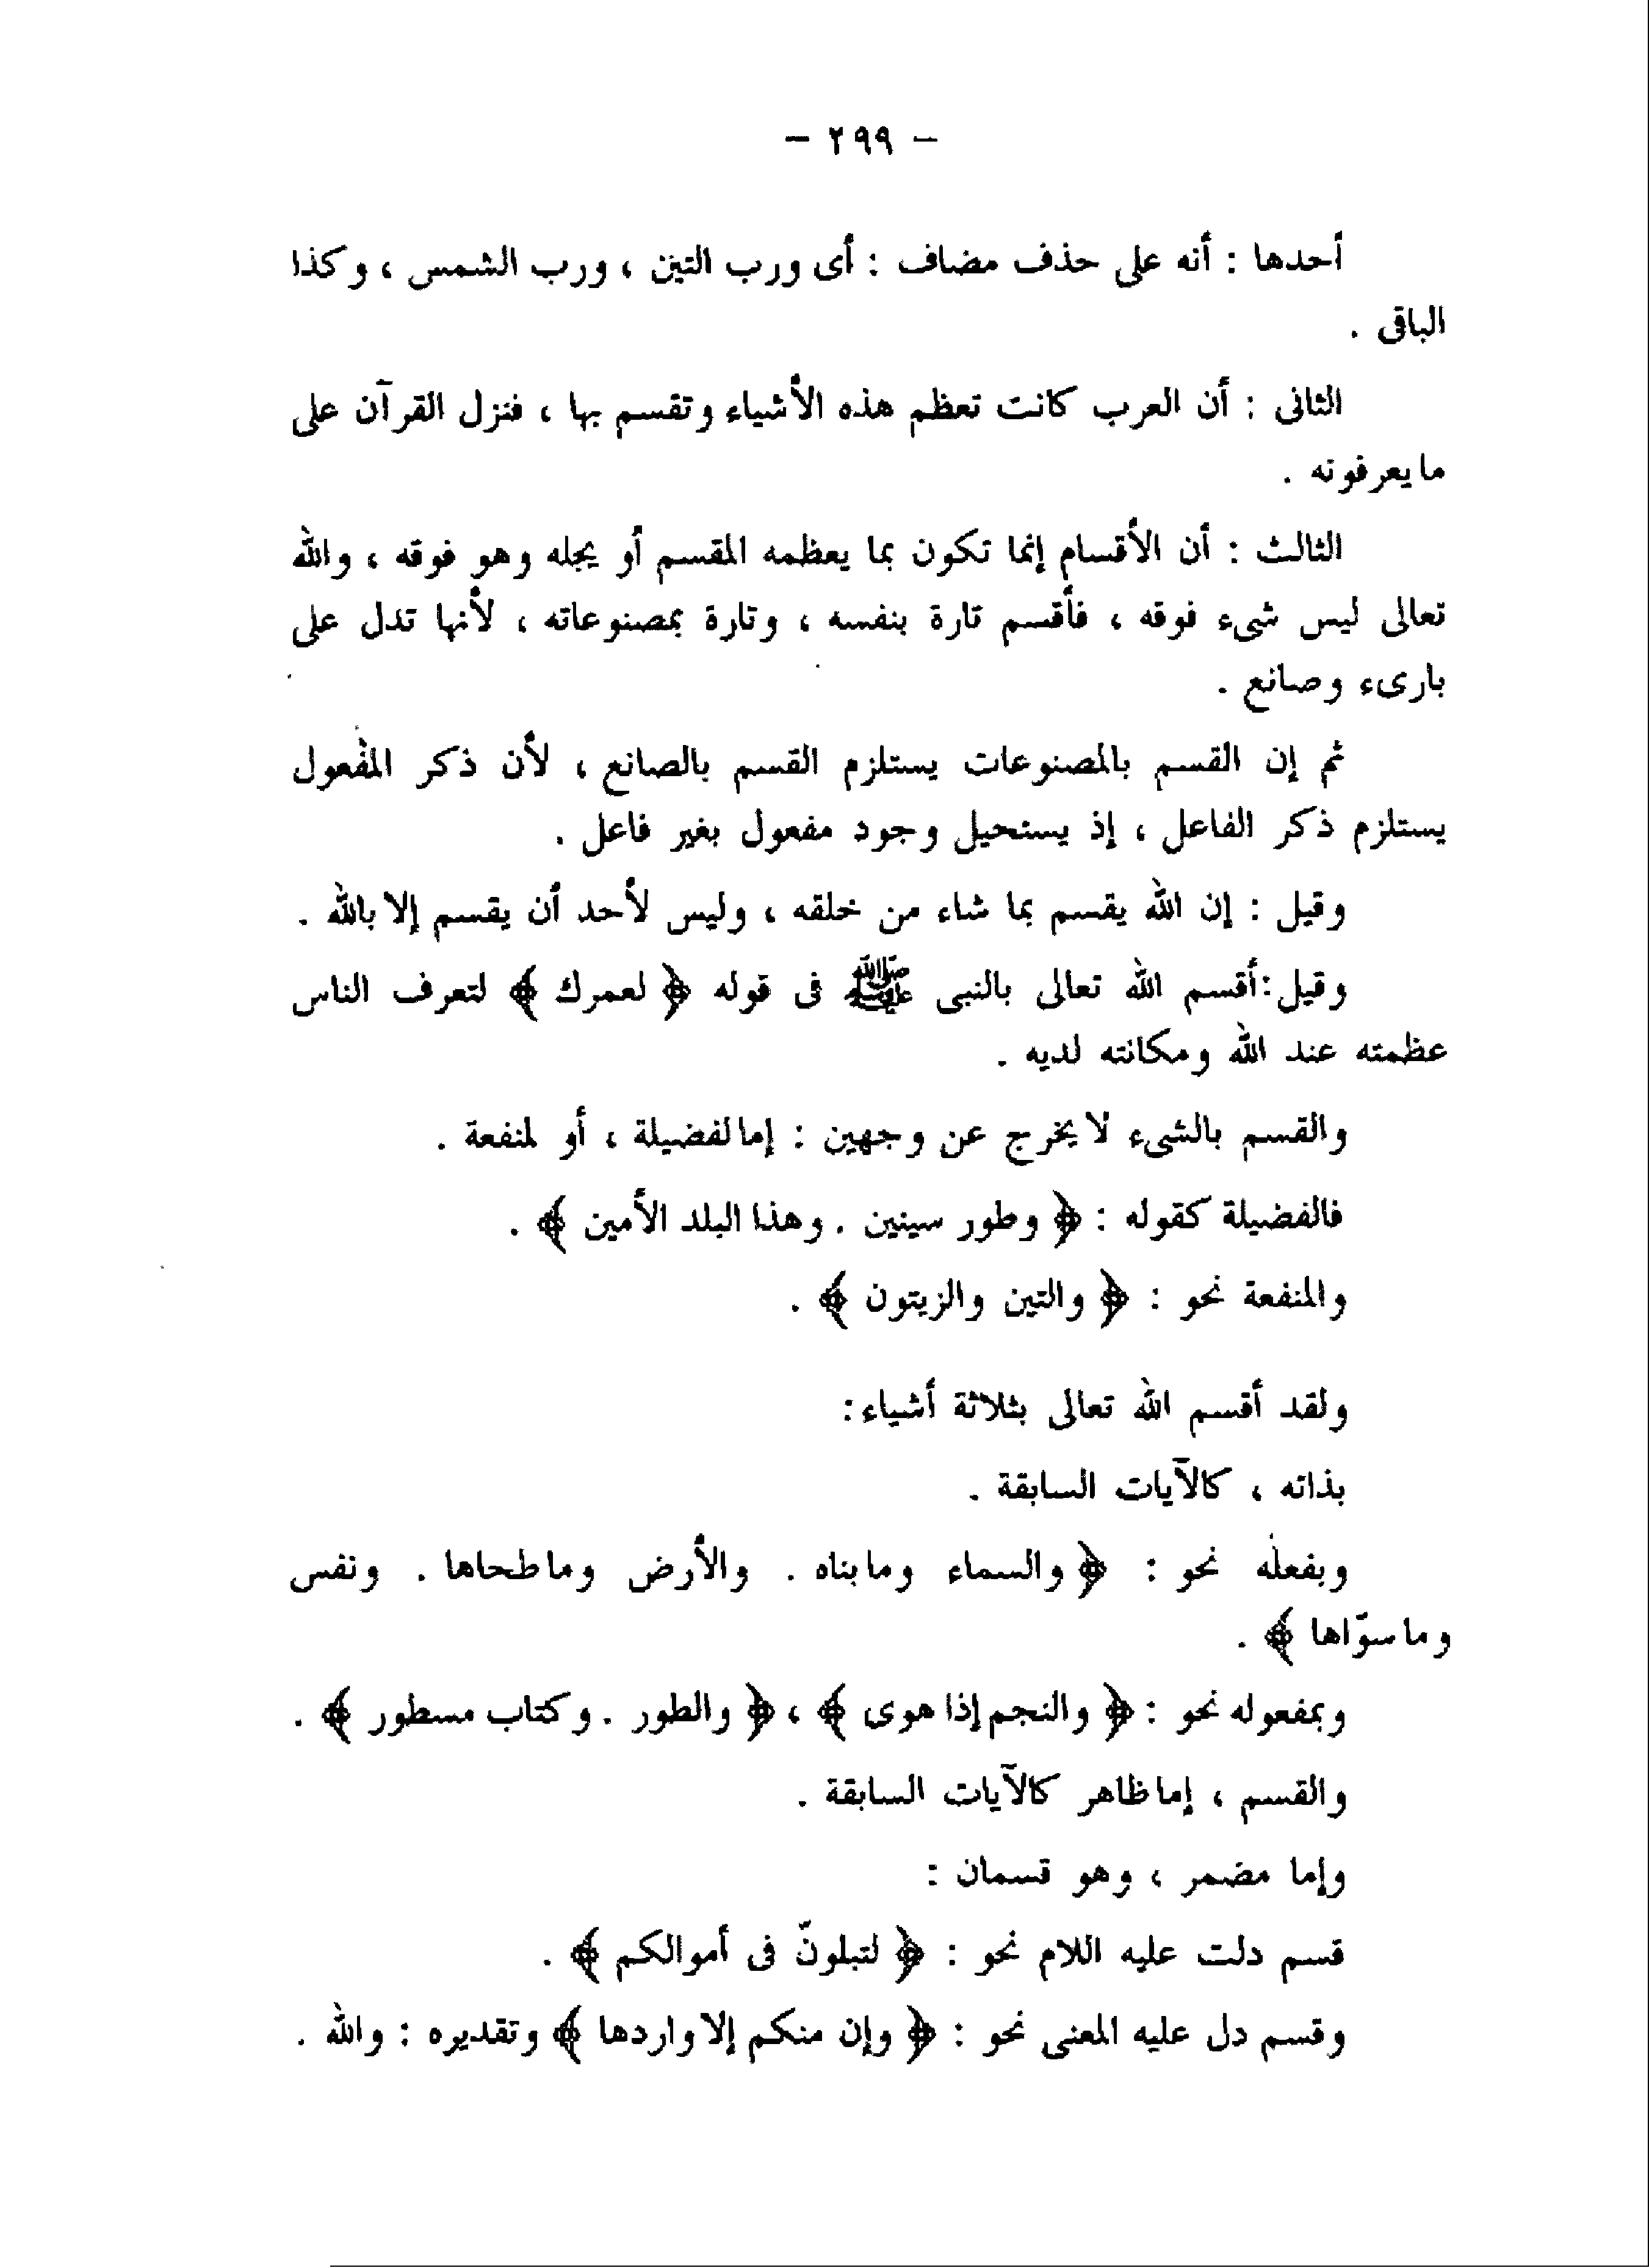 – ٢٩٩ –
أحدها : أنه على حذف مضاف : أى ورب التين ، ورب الشمس ، وكذا
الباقى .
الثانى : أن العرب كانت تعظم هذه الأشياء وتقسم بها ، فنزل القرآن على
ما يعرفونه .
الثالث : أن الأقسام إنما تكون بما يعظمه المقسم أو يجله وهو فوقه ، والله
تعالى ليس شىء فوقه ، فأقسم تارة بنفسه ، وتارة بمصنوعاته ، لأنها تدل على
بارىء وصانع .
ثم إن القسم بالمصنوعات يستلزم القسم بالصانع ، لأن ذكر المفعول
يستلزم ذكر الفاعل ، إذ يستحيل وجود مفعول بغير فاعل .
وقيل : إن الله يقسم بما شاء من خلقه ، وليس لأحد أن يقسم إلا بالله .
وقيل : أقسم الله تعالى بالنبى ﷺ فى قوله ﴿ لعمرك ﴾ لتعرف الناس
عظمته عند الله ومكانته لديه .
والقسم بالشىء لا يخرج عن وجهين : إما لفضيلة ، أو لمنفعة .
فالفضيلة كقوله : ﴿ وطور سينين . وهذا البلد الأمين ﴾ .
والمنفعة نحو : ﴿ والتين والزيتون ﴾ .
ولقد أقسم الله تعالى بثلاثة أشياء :
بذاته ، كالآيات السابقة .
وبفعله نحو : ﴿ والسماء وما بناه . والأرض وما طحاها . ونفس
وما سوّاها ﴾ .
وبمفعوله نحو : ﴿ والنجم إذا هوى ﴾ ، ﴿ والطور . وكتاب مسطور ﴾ .
والقسم ، إما ظاهر كالآيات السابقة .
وإما مضمر ، وهو قسمان :
قسم دلت عليه اللام نحو : ﴿ لتبلونّ فى أموالكم ﴾ .
وقسم دل عليه المعنى نحو : ﴿ وإن منكم إلا واردها ﴾ وتقديره : والله .